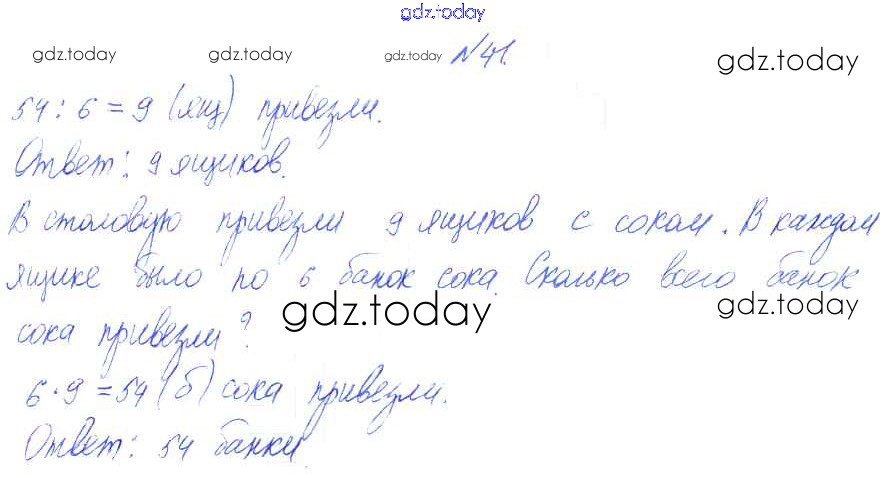 gdz.today
gdz.today gdz.today gdz.today №41. gdz.today
54 : 6 = 9 (ящ) привезли.
Ответ: 9 ящиков.
В столовую привезли 9 ящиков с соком. В каждом
ящике было по 6 банок сока. Сколько всего банок
gdz.today gdz.today
сока привезли?
6 · 9 = 54 (б) сока привезли.
gdz.today
Ответ: 54 банки.